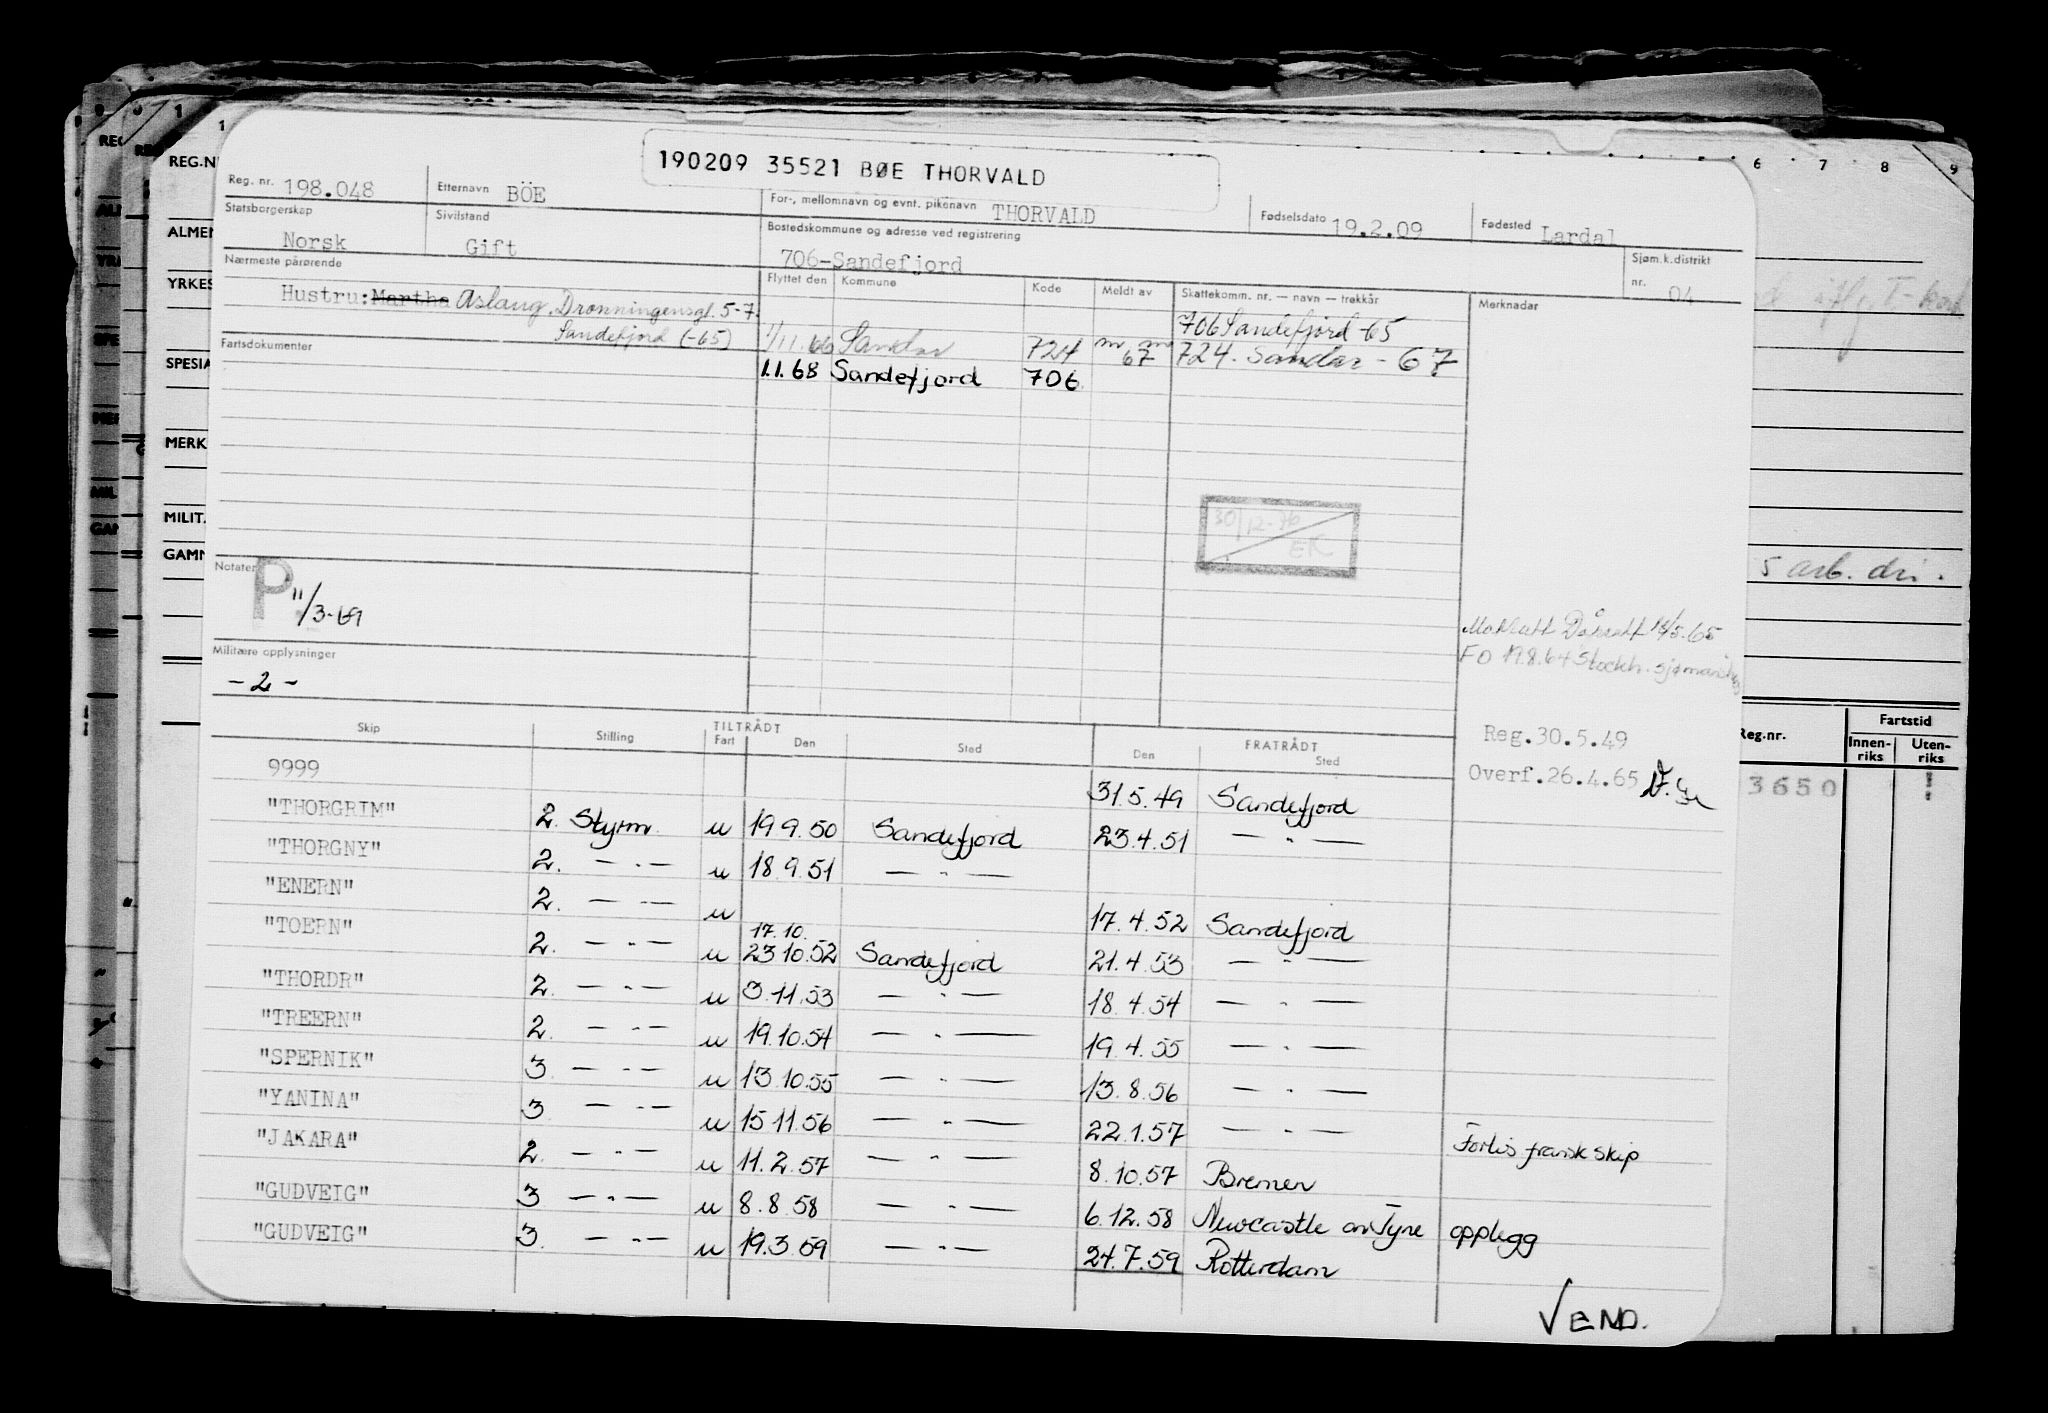 190209 35521 BØE THORVALD
Reg. nr. 198.048 Etternavn BÖE For-, mellomnavn og evnt. pikenavn THORVALD Fødselsdato 19.2.09 Fødested Lardal
Statsborgerskap Norsk Sivilstand Gift Bostedskommune og adresse ved registrering 706-Sandefjord Sjøm.k.distrikt nr. 04
Nærmeste pårørende Flyttet den Kommune Kode Meldt av Skattekomm. nr. — navn — trekkår Merknader
Hustru: Martha Aslaug, Dronningensgt. 5-7. 706 Sandefjord -65
Sandefjord (-65) 1/11.66 Sandar 724 67 724. Sandar - 67
Fartsdokumenter 1.1.68 Sandefjord 706
30/12-76
EK
Notater P 11/3-69
5 arb. dri.
18/5.65
FO 19.8.64 Stockh.
Militære opplysninger
- 2 -
Reg.30.5.49
Overf.26.4.65
Skip Stilling TILTRÅDT Fart Den Sted FRATRÅDT Den Sted
9999 31.5.49 Sandefjord
"THORGRIM" 2. Styrm. u 19 9.50 Sandefjord 23.4.51 — " —
"THORGNY" 2. — " — u 18.9.51 — " —
"ENERN" 2. — " — u 17.4.52 Sandefjord
17.10.
"TOERN" 2. — " — u 23 10.52 Sandefjord 21.4.53 — " —
"THORDR" 2. — " — u 3.11.53 — " — 18.4.54 — " —
"TREERN" 2. — " — u 19.10.54 — " — 19.4.55 — " —
"SPERNIK" 3 — " — u 13.10.55 — " — 13.8.56 — " —
"YANINA" 3. — " — u 15 11.56 — " — 22.1.57 — " — Forlis fransk skip
"JAKARA" 2. — " — u 11.2.57 — " — 8.10.57 Bremen
"GUDVEIG" 3 — " — u 8.8.58 — " — 6.12.58 Newcastle on Tyne opplegg
"GUDVEIG" 3. — " — u 19.3.59 — " — 24.7.59 Rotterdam
VEND.
REG.N
ALMEN
YRKES
SPESIA
MERK
MILIT
GAMM
6 7 8 9
Reg.nr. Fartstid
Innen-riks Uten-riks
3650